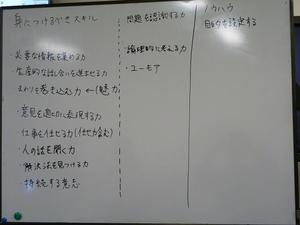 身につけるべきスキル
・必要な情報を集める力
生産的な話し合いを進ませる力
まわりを巻き込む力 ←(魅力)
・意見を適切に表現する力
仕事を任せる力(任せ方含む)
・人の話を聞く力
・解決法を見つける力
・持続する意志
問題を認識する力
・論理的に考える力
・ユーモア
ノウハウ
目的を設定する